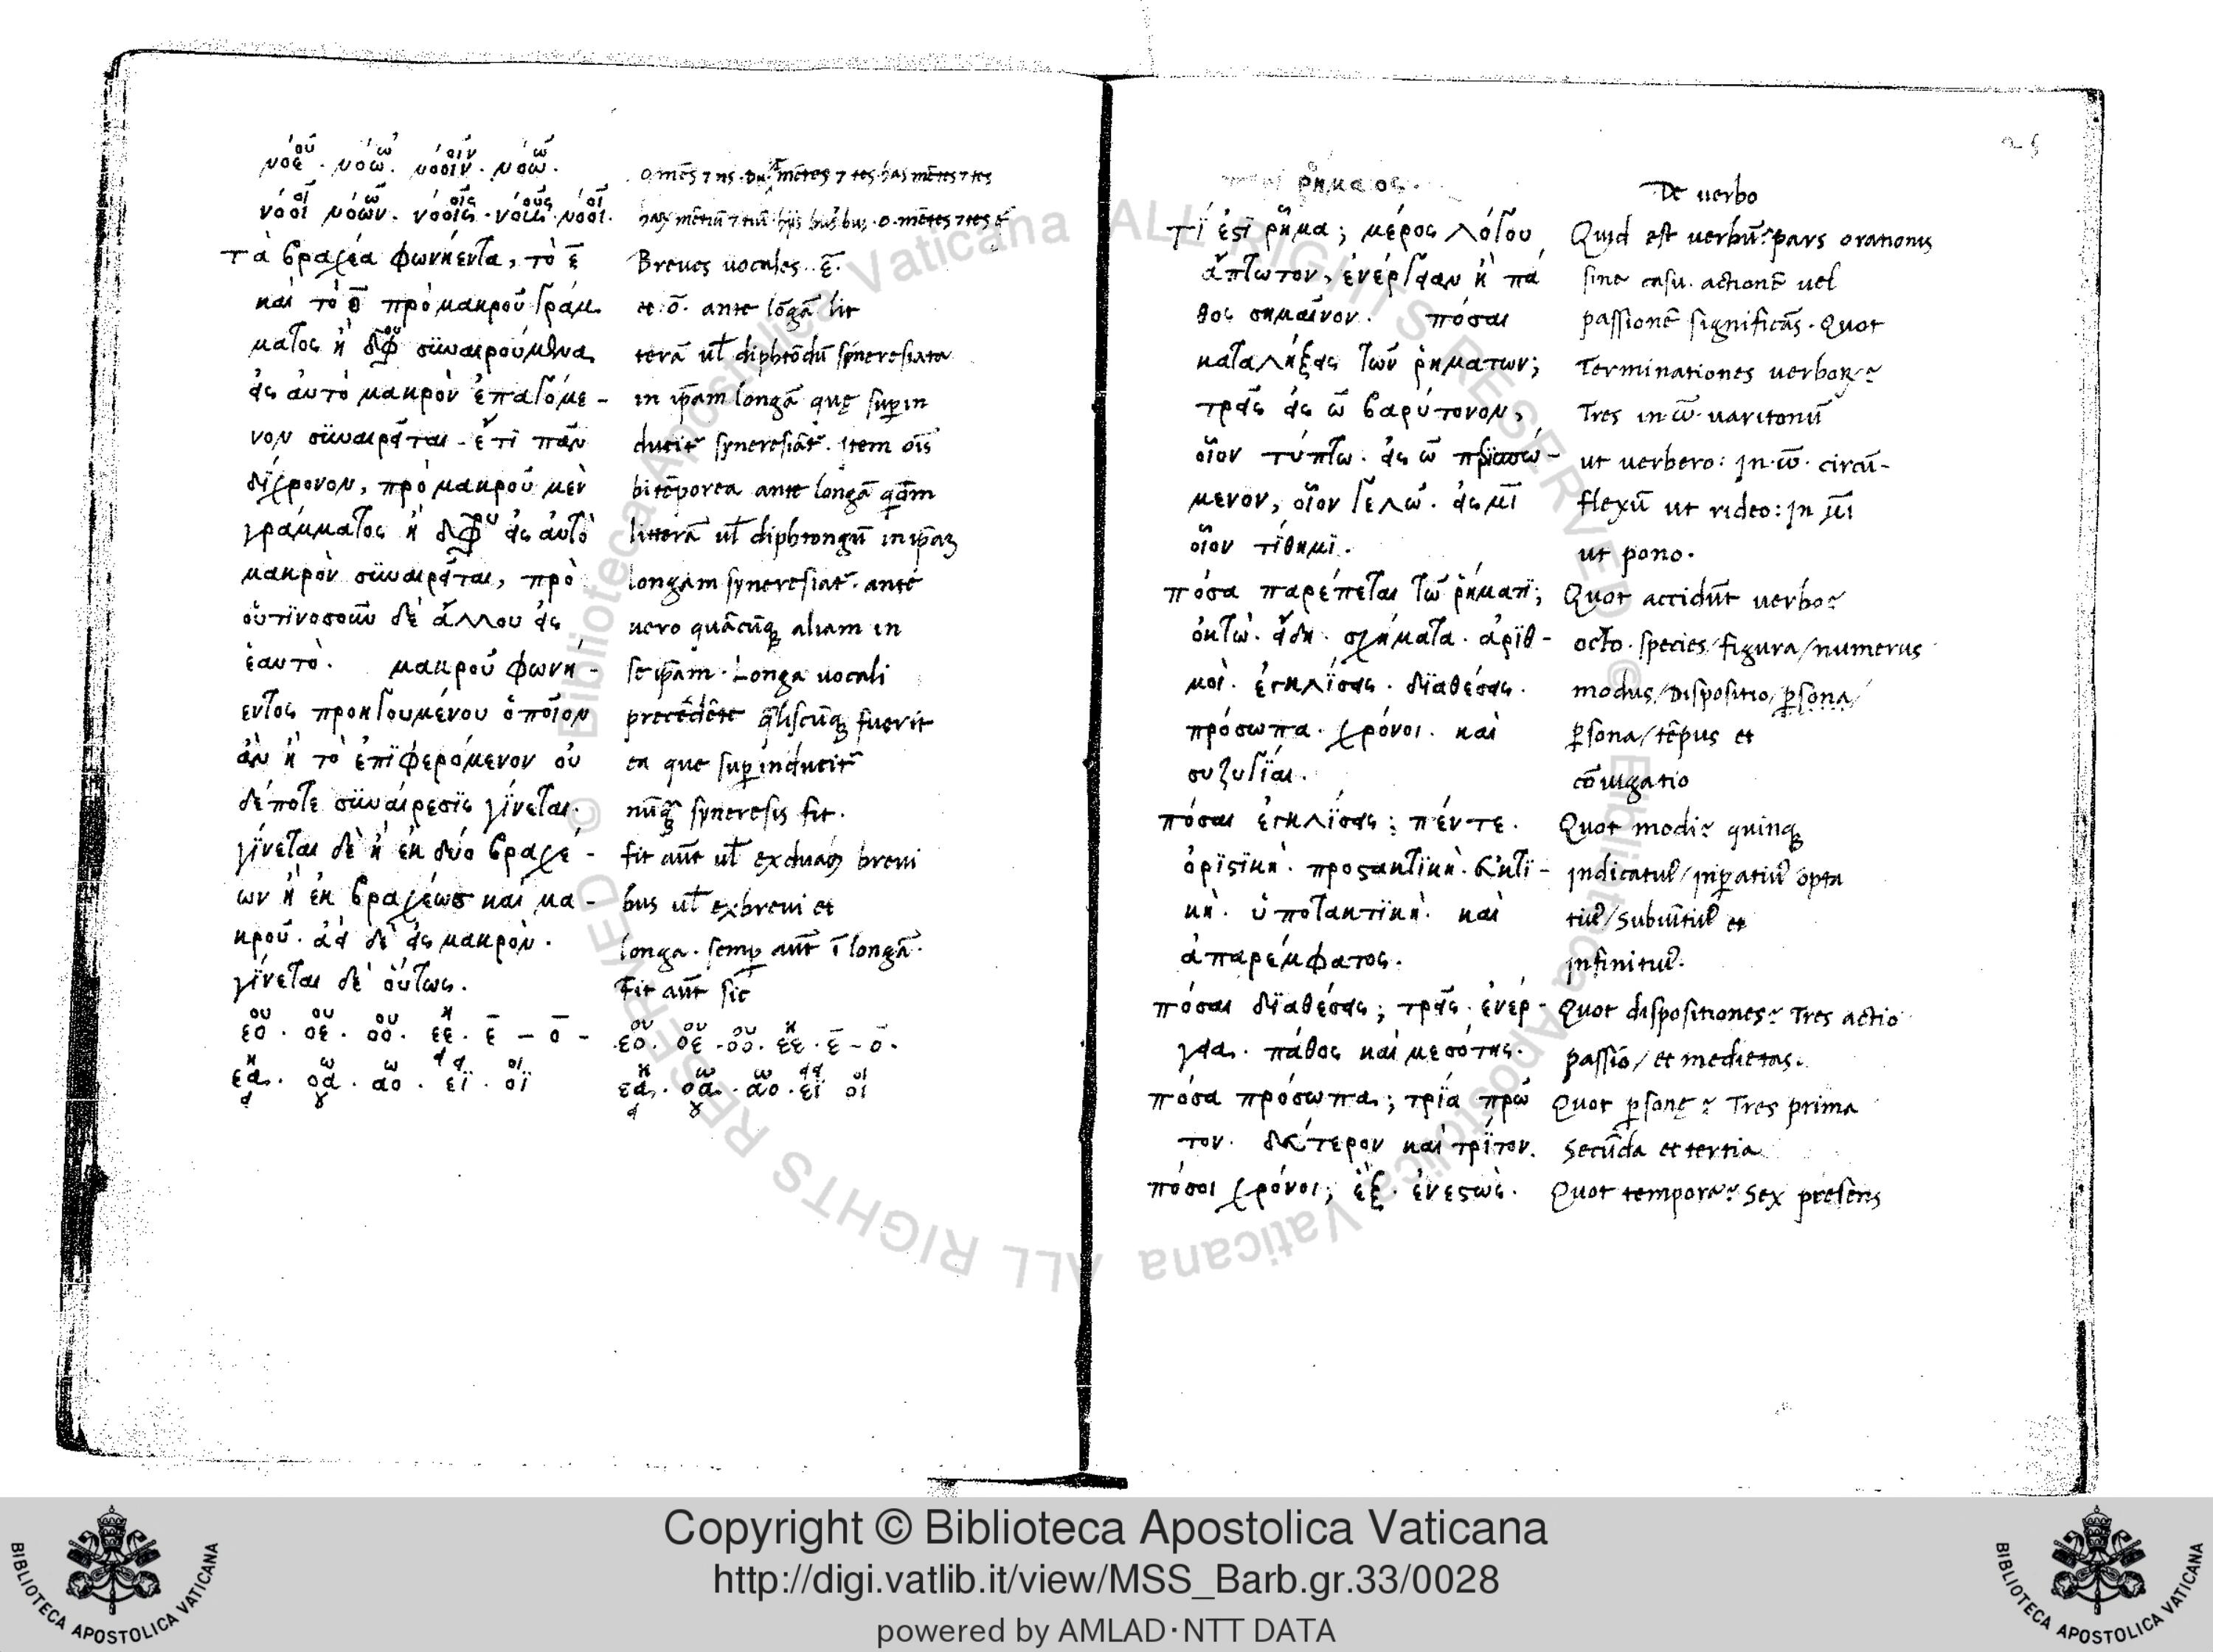 νόε · νόω · νόοιν · νόω ·
νόοι νόων · νόοις · νόους · νόοι ·
τὰ βραχέα φωνήεντα, τὸ ε̄
καὶ τὸ ο̄ πρὸ μακροῦ γράμ
ματος ἢ δφ^ου συναιρούμενα
εἰς αὐτὸ μακρὸν ἐπαγόμε-
νον συναιρεῖται - ἔτι πᾶν
δίχρονον, πρὸ μακροῦ μὲν
γράμματος ἢ δφ^ου εἰς αὐτὸ
μακρὸν συναιρεῖται, πρὸ
οὑτινοσοῦν δὲ ἄλλου εἰς
ἑαυτὸ. μακροῦ φωνή-
εντος προηγουμένου ὁποῖον
ἂν ᾖ τὸ ἐπιφερόμενον οὐ
δέποτε συναίρεσις γίνεται.
γίνεται δὲ ἢ ἐκ δύο βραχέ-
ων ἢ ἐκ βραχέως καὶ μα-
κροῦ. ἀεὶ δὲ εἰς μακρὸν.
γίνεται δὲ οὕτως.
ου ου ου η
εο · οε · οο · εε · ε̄ - ο̄ -
η ω ω ει οι
εα · οα · αο · εϊ · οϊ
Breues uocales ε̄.
et ō. ante lōgā lit
terā ul̄ diphtōdū syneresiata
in ip̄am longā quę sup̄in
ducit᷑ syneresiāt᷑. Item oīs
bitēporea ante longā qđam
litterā ul̄ diphtongū in ip̄aꝫ
longam syneresiat᷑. ante
uero quācūqꝫ aliam in
se ip̄am. Longa uocali
precēdēte q̄liscūqꝫ fuerit
ea que sup̄inducit᷑
nūq̄ syneresis fit.
fit aūt ul̄ ex duabꝫ breui
bus ul̄ ex breui et
longa. semp̄ aūt ī longā.
Fit aūt sic
ου ου ου η
εο · οε · οο · εε · ε̄ - ο̄ ·
η ω ω ει οι
εα · οα · αο · εϊ οϊ
25
ῥήματος.
De uerbo
Τί ἐστι ῥῆμα; μέρος λόγου
ἄπτωτον, ἐνέργειαν ἢ πά
θος σημαῖνον. πόσαι
καταλήξεις τῶν ῥημάτων;
τρεῖς εἰς ω̄ βαρύτονον,
οἷον τύπτω. εἰς ω̄ περισπώ-
μενον, οἷον γελῶ. εἰς μῑ
οἷον τίθημι.
πόσα παρέπεται τῷ ῥήματι;
ὀκτὼ. εἴδη. σχήματα. ἀριθ-
μοὶ. ἐγκλίσεις. διαθέσεις.
πρόσωπα. χρόνοι. καὶ
συζυγίαι.
πόσαι ἐγκλίσεις; πέντε.
ὁριστικὴ. προστακτικὴ. εὐκτι-
κὴ. ὑποτακτικὴ. καὶ
ἀπαρέμφατος.
πόσαι διαθέσεις; τρεῖς. ἐνέρ-
γεια. πάθος καὶ μεσότης.
πόσα πρόσωπα; τρία πρῶ
τον. δεύτερον καὶ τρίτον.
πόσοι χρόνοι; ἓξ. ἐνεστὼς.
Quid est uerbū? pars orationis
sine casu. actionē uel
passionē significās. Quot
Terminationes uerboꝝ?
Tres in ω̄ uaritonū
ut uerbero: In ω̄ circū-
flexū ut rideo: In μ̄ι
ut pono.
Quot accidūt uerbo?
octo. species/figura/numerus
modus/Dispositio/p̱sona/
p̱sona/tēpus et
cōiugatio
Quot modi? quinqꝫ
Indicatiuꝰ/Inp̱atiuꝰ opta
tiuꝰ/Subiūtiuꝰ et
infinituꝰ.
Quot dispositiones? Tres actio
passio/et medietas.
Quot p̱sonę? Tres prima
Secūda et tertia
Quot tempora? Sex presens
Copyright © Biblioteca Apostolica Vaticana
http://digi.vatlib.it/view/MSS_Barb.gr.33/0028
powered by AMLAD·NTT DATA
BIBLIOTECA APOSTOLICA VATICANA
BIBLIOTECA APOSTOLICA VATICANA
© Biblioteca Apostolica Vaticana ALL RIGHTS RESERVED
© Biblioteca Apostolica Vaticana ALL RIGHTS RESERVED